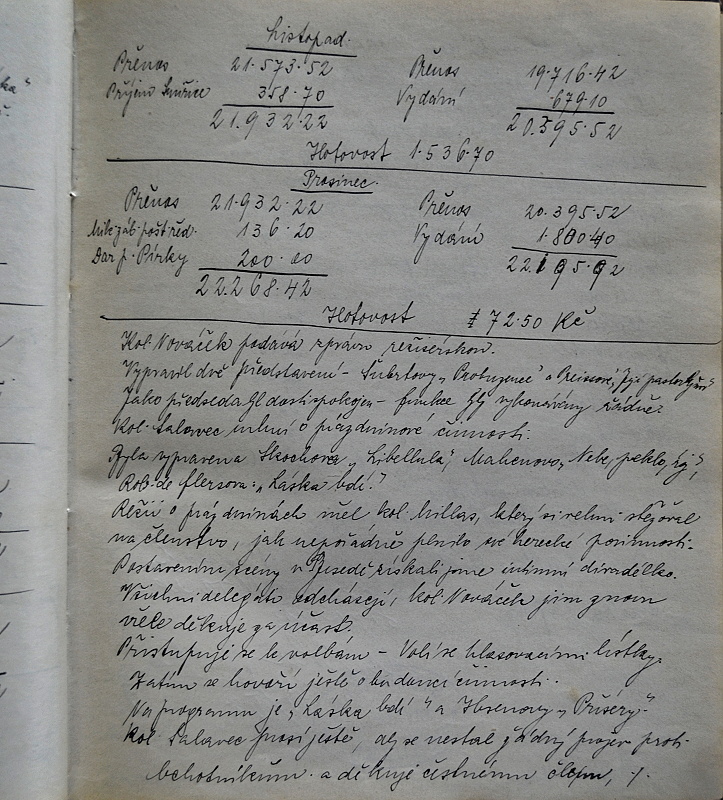 Listopad.
Přenos 21.573.52 Přenos 19.716.42
Příjem Smiřice 358.70 Vydání 679.10
21.932.22 20.395.52
Hotovost 1.536.70
Prosinec.
Přenos 21.932.22 Přenos 20.395.52
136.20 Vydání 1.800.40
Dar p. Pírky 200.00
22.268.42 22.195.92
Hotovost 72.50 Kč
Kol. Nováček podává zprávu režisérskou.
Vypravil dvě představení – Šubrtovy „Probuzenci" a
Jako předseda byl dosti spokojen – funkce byly vykonávány řádně.
Kol. Salavec mluví o prázdninové činnosti.
Byla vypravena Skochova „Libellula", Mahenovo „Nebe, peklo, ráj",
Rob. de Flersova: „Láska bdí."
Režii o prázdninách měl kol. Millas, který si velmi stěžoval
na členstvo, jak nepořádně plnilo své herecké povinnosti.
Postavením scény v Besedě získali jsme intimní divadélko.
Všichni delegáti odcházejí, kol. Nováček jim znovu
vřele děkuje za účast.
Přistupuje se k volbám – Volí se hlasovacími lístky.
Zatím se hovoří ještě o budoucí činnosti.
Na programu je „Láska bdí" a Ibsenovy „Příšery"
Kol. Salavec prosí ještě, aby se nestal žádný projev proti
ochotníkům a děkuje čestnému členu, ./.